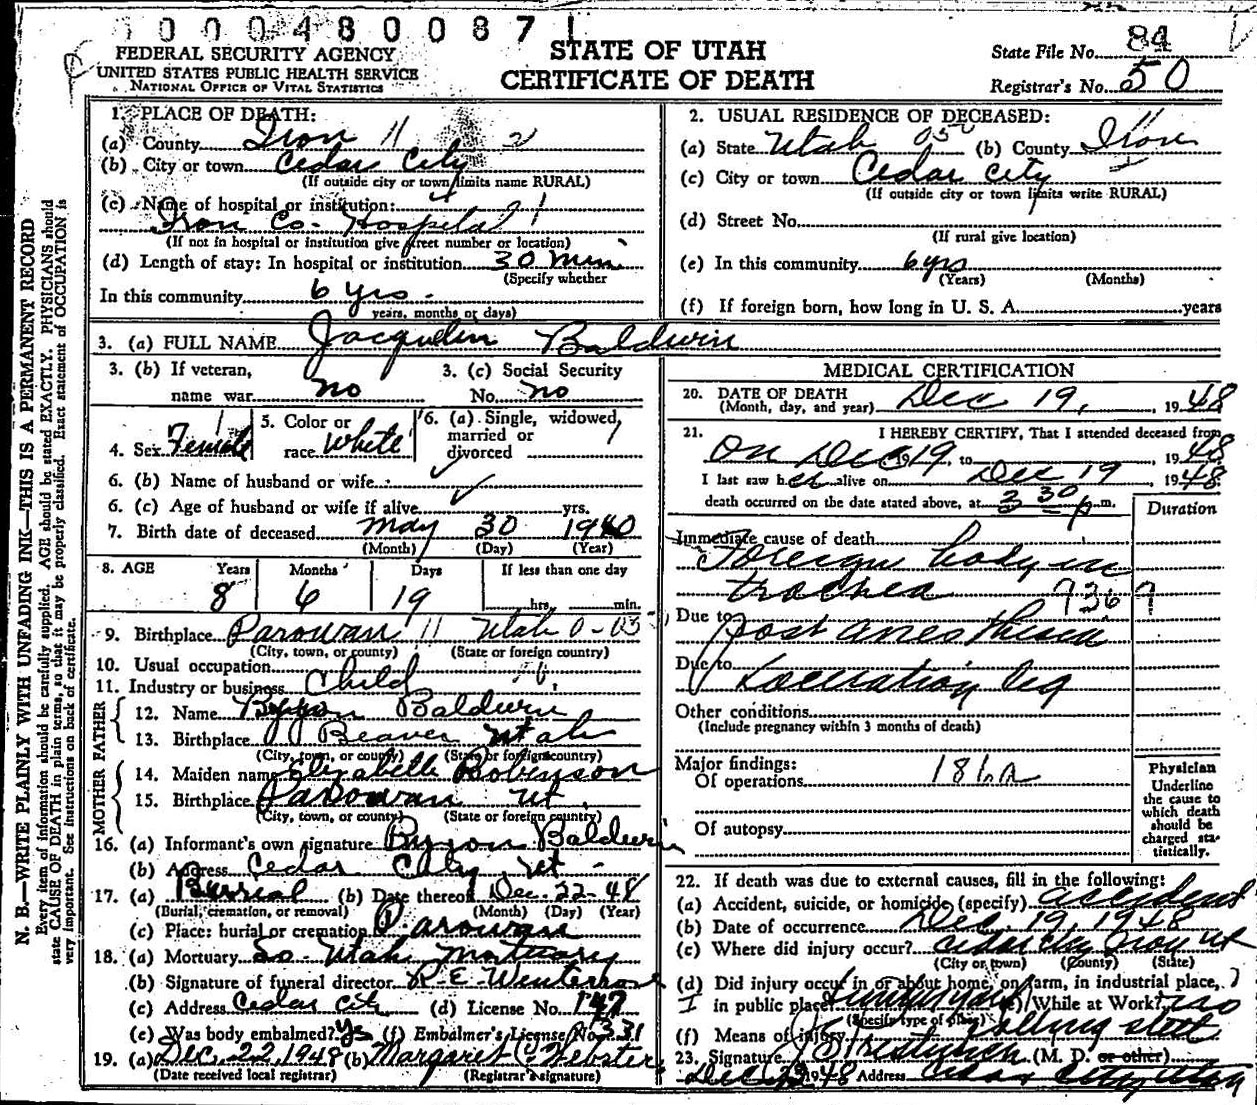 1 0 0 0 4 8 0 0 8 7 1
FEDERAL SECURITY AGENCY
UNITED STATES PUBLIC HEALTH SERVICE
NATIONAL OFFICE OF VITAL STATISTICS
STATE OF UTAH
CERTIFICATE OF DEATH
State File No. 84
Registrar's No. 50
N. B.—WRITE PLAINLY WITH UNFADING INK—THIS IS A PERMANENT RECORD
Every item of information should be carefully supplied. AGE should be stated EXACTLY. PHYSICIANS should
state CAUSE OF DEATH in plain terms, so that it may be properly classified. Exact statement of OCCUPATION is
very important. See instructions on back of certificate.
1. PLACE OF DEATH:
(a) County Iron 11 2
(b) City or town Cedar City
(If outside city or town limits name RURAL)
(c) Name of hospital or institution:
Iron Co. Hospital
(If not in hospital or institution give street number or location)
(d) Length of stay: In hospital or institution 30 min
(Specify whether
In this community 6 yrs.
years, months or days)
2. USUAL RESIDENCE OF DECEASED:
(a) State Utah 05 (b) County Iron
(c) City or town Cedar City
(If outside city or town limits write RURAL)
(d) Street No.
(If rural give location)
(e) In this community 6 yrs
(Years) (Months)
(f) If foreign born, how long in U. S. A. years
3. (a) FULL NAME Jacquelin Baldwin
3. (b) If veteran,
name war no
3. (c) Social Security
No. no
4. Sex Female
5. Color or
race White
6. (a) Single, widowed,
married or
divorced
6. (b) Name of husband or wife
6. (c) Age of husband or wife if alive yrs.
7. Birth date of deceased May 30 1940
(Month) (Day) (Year)
8. AGE Years Months Days If less than one day
8 6 19 hrs. min.
9. Birthplace Parowan 11 Utah
(City, town, or county) (State or foreign country)
10. Usual occupation
11. Industry or business Child
FATHER
12. Name Byron Baldwin
13. Birthplace Beaver Utah
(City, town, or county) (State or foreign country)
MOTHER
14. Maiden name Elzabelle Robinson
15. Birthplace Parowan Ut.
(City, town, or county) (State or foreign country)
16. (a) Informant's own signature Byron Baldwin
(b) Address Cedar City Ut
17. (a) Burreal (b) Date thereof Dec. 22-48
(Burial, cremation, or removal) (Month) (Day) (Year)
(c) Place: burial or cremation Parowan
18. (a) Mortuary So. Utah Mortuary
(b) Signature of funeral director R. E. Winterrose
(c) Address Cedar City (d) License No. 147
(e) Was body embalmed? Yes (f) Embalmer's License No. 331
19. (a) Dec. 22, 1948 (b) Margaret C. Webster
(Date received local registrar) (Registrar's signature)
MEDICAL CERTIFICATION
20. DATE OF DEATH
(Month, day, and year) Dec 19, , 1948
21. I HEREBY CERTIFY, That I attended deceased from
On Dec 19 19 , to Dec 19 , 1948
I last saw her alive on Dec 19 , 1948
death occurred on the date stated above, at 3 30 p. m.
Duration
Immediate cause of death
Foreign body in
trachea 936 9
Due to post anesthesia
Due to
Laceration leg
Other conditions
(Include pregnancy within 3 months of death)
Major findings:
Of operations
Of autopsy
Physician
Underline
the cause to
which death
should be
charged sta-
tistically.
22. If death was due to external causes, fill in the following:
(a) Accident, suicide, or homicide (specify) accident
(b) Date of occurrence Dec. 19, 1948
(c) Where did injury occur? Cedar City Iron Ut
(City or town) (County) (State)
(d) Did injury occur in or about home, on farm, in industrial place,
in public place? (e) While at Work? no
(Specify type of place)
(f) Means of injury falling steel
23. Signature (M. D. or other)
Dec 23 1948 Address Cedar City, Utah